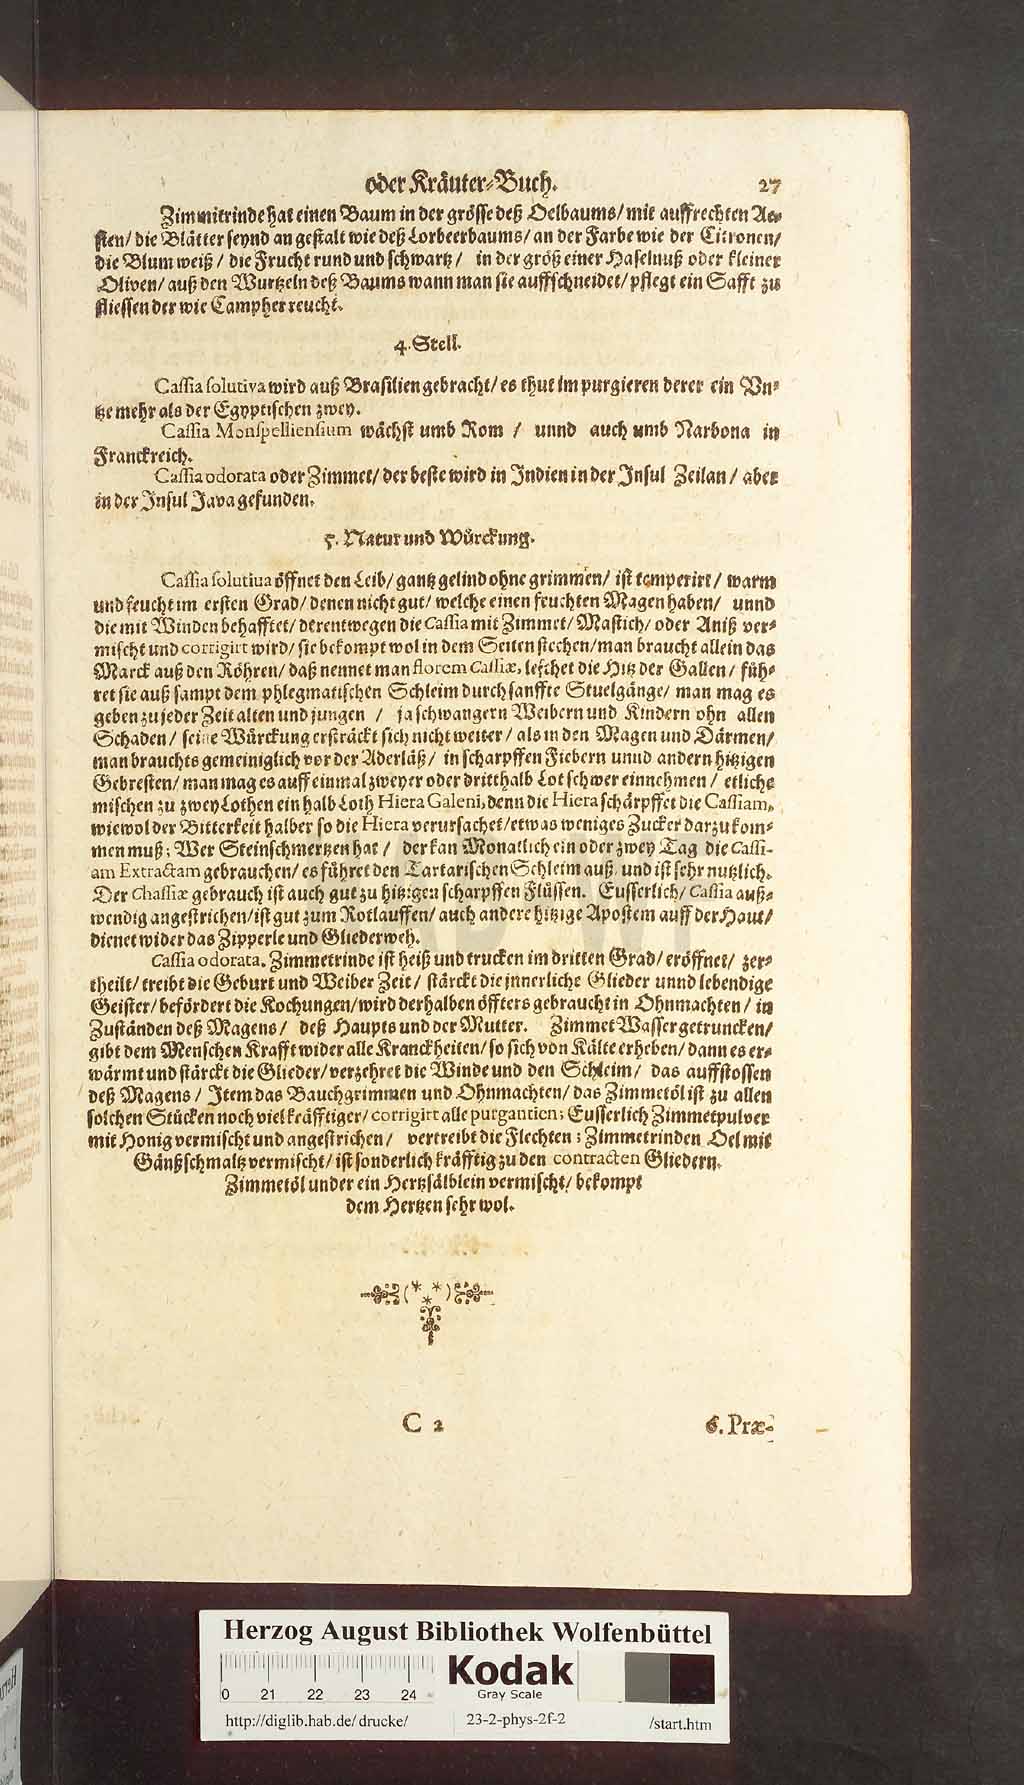 oder Kräuter-Buch. 27
Zimmitrinde hat einen Baum in der grösse deß Oelbaums/ mit auffrechten Ae-
sten/ die Blätter seynd an gestalt wie deß Lorbeerbaums/ an der Farbe wie der Citronen/
die Blum weiß/ die Frucht rund und schwartz/ in der größ einer Haselnuß oder kleiner
Oliven/ auß den Wurtzeln deß Baums wann man sie auffschneidet/ pflegt ein Safft zu
fliessen der wie Campher reucht.
4. Stell.
Cassia solutiva wird auß Brasilien gebracht/ es thut im purgieren derer ein Vn-
tze mehr als der Egyptischen zwey.
Cassia Monspelliensium wächst umb Rom/ unnd auch umb Narbona in
Franckreich.
Cassia odorata oder Zimmet/ der beste wird in Indien in der Insul Zeilan/ aber
in der Insul Java gefunden.
5. Natur und Würckung.
Cassia solutiua öffnet den Leib/ gantz gelind ohne grimmen/ ist temperirt/ warm
und feucht im ersten Grad/ denen nicht gut/ welche einen feuchten Magen haben/ unnd
die mit Winden behafftet/ derentwegen die Cassia mit Zimmet/ Mastich/ oder Aniß ver-
mischt und corrigirt wird/ sie bekompt wol in dem Seiten stechen/ man braucht allein das
Marck auß den Röhren/ daß nennet man florem Cassiæ, leschet die Hitz der Gallen/ füh-
ret sie auß sampt dem phlegmatischen Schleim durch sanffte Stuelgänge/ man mag es
geben zu jeder Zeit alten und jungen/ ja schwangern Weibern und Kindern ohn allen
Schaden/ seine Würckung ersträckt sich nicht weiter/ als in den Magen und Därmen/
man brauchts gemeiniglich vor der Aderläß/ in scharpffen Fiebern unnd andern hitzigen
Gebresten/ man mag es auff einmal zweyer oder dritthalb Lot schwer einnehmen/ etliche
mischen zu zwey Lothen ein halb Loth Hiera Galeni, denn die Hiera schärpffet die Cassiam,
wiewol der Bitterkeit halber so die Hiera verursachet/ etwas weniges Zucker darzu kom-
men muß; Wer Steinschmertzen hat/ der kan Monatlich ein oder zwey Tag die Cassi-
am Extractam gebrauchen/ es führet den Tartarischen Schleim auß/ und ist sehr nutzlich.
Der Chassiæ gebrauch ist auch gut zu hitzigen scharpffen Flüssen. Eusserlich/ Cassia auß-
wendig angestrichen/ ist gut zum Rotlauffen/ auch andere hitzige Apostem auff der Haut/
dienet wider das Zipperle und Gliederweh.
Cassia odorata. Zimmetrinde ist heiß und trucken im dritten Grad/ eröffnet/ zer-
theilt/ treibt die Geburt und Weiber Zeit/ stärckt die jnnerliche Glieder unnd lebendige
Geister/ befördert die Kochungen/ wird derhalben öffters gebraucht in Ohnmachten/ in
Zuständen deß Magens/ deß Haupts und der Mutter. Zimmet Wasser getruncken/
gibt dem Menschen Krafft wider alle Kranckheiten/ so sich von Kälte erheben/ dann es er-
wärmt und stärckt die Glieder/ verzehret die Winde und den Schleim/ das auffstossen
deß Magens/ Item das Bauchgrimmen und Ohnmachten/ das Zimmetöl ist zu allen
solchen Stücken noch viel kräfftiger/ corrigirt alle purgantien; Eusserlich Zimmetpulver
mit Honig vermischt und angestrichen/ vertreibt die Flechten; Zimmetrinden Oel mit
Gänßschmaltz vermischt/ ist sonderlich kräfftig zu den contracten Gliedern.
Zimmetöl under ein Hertzsälblein vermischt/ bekompt
dem Hertzen sehr wol.
C 2 6. Præ-
Herzog August Bibliothek Wolfenbüttel
Kodak
Gray Scale
0 21 22 23 24
http://diglib.hab.de/drucke/ 23-2-phys-2f-2 /start.htm